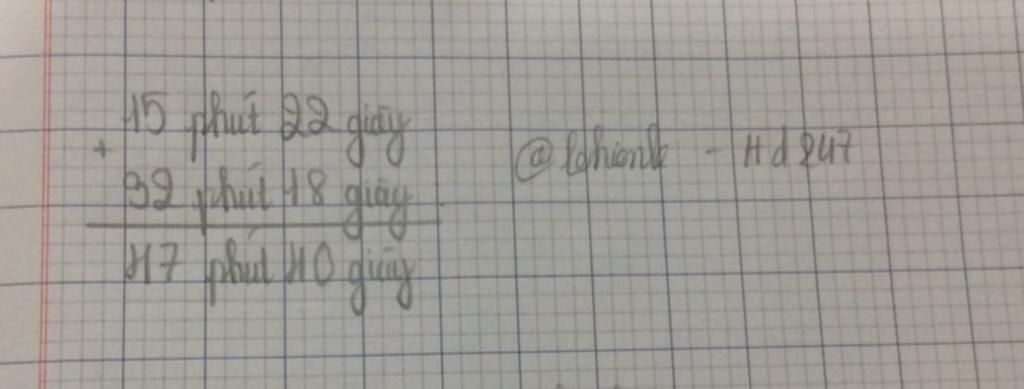 15 phút 22 giây
+
32 phút 18 giây
47 phút 40 giây
- Hd247